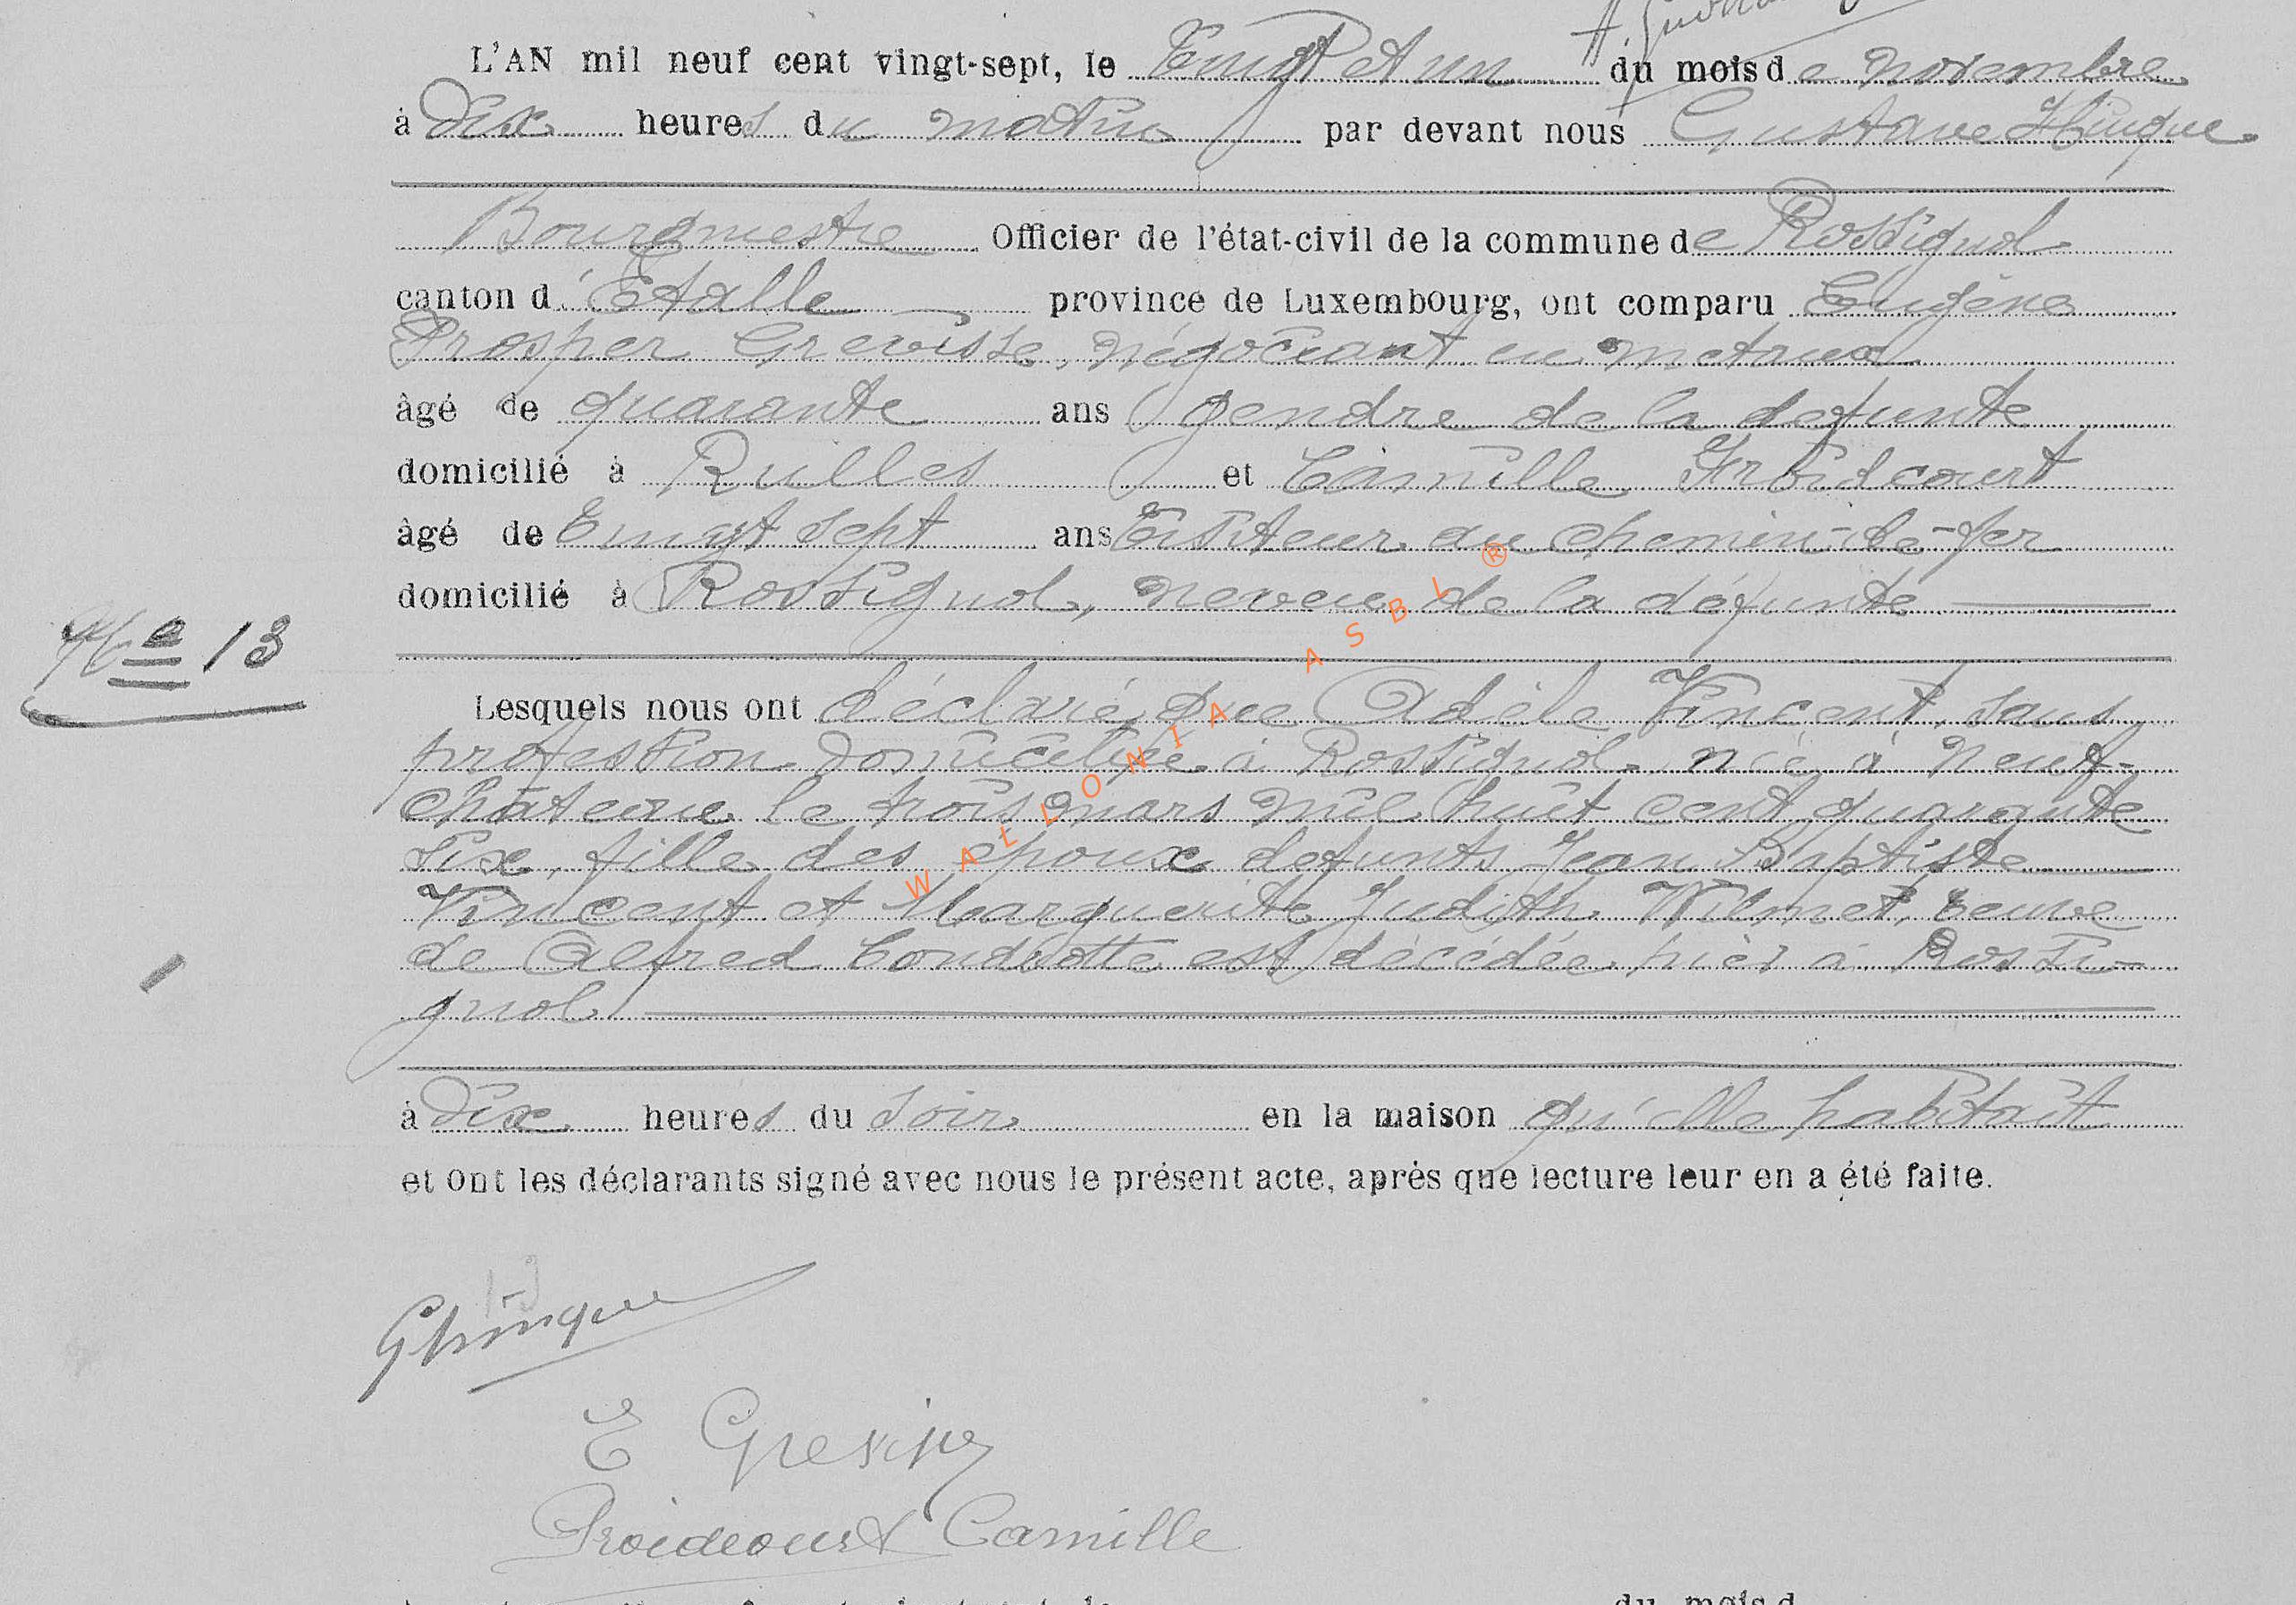 L'AN mil neuf cent vingt-sept, le Vingt et un du mois de novembre
à Dix heures du matin par devant nous Gustave Hinque
Bourgmestre Officier de l'état-civil de la commune de Rossignol
canton d'Etalle province de Luxembourg, ont comparu Eugène
Prosper Grévisse, négociant en métaux
âgé de quarante ans gendre de la defunte
domicilié à Rulles et Camille Froidcourt
âgé de Vingt sept ans Visiteur au chemin-de-fer
domicilié à Rossignol, neveu de la défunte
Nº 13
Lesquels nous ont déclaré que Adèle Vincent, sans
profession domiciliée à Rossignol, née à Neuf-
château le trois mars mil huit cent quarante
six, fille des époux defunts Jean Baptiste
Vincent et Marguerite Judith Wilmet, veuve
de Alfred Condrotte est décédée hier à Rossi-
gnol
à Dix heures du soir en la maison qu'elle habitait
et ont les déclarants signé avec nous le présent acte, après que lecture leur en a été faite.
GHinque
E Grevisse
Froidcourt Camille
du mois d
WALLONIA ASBL ®